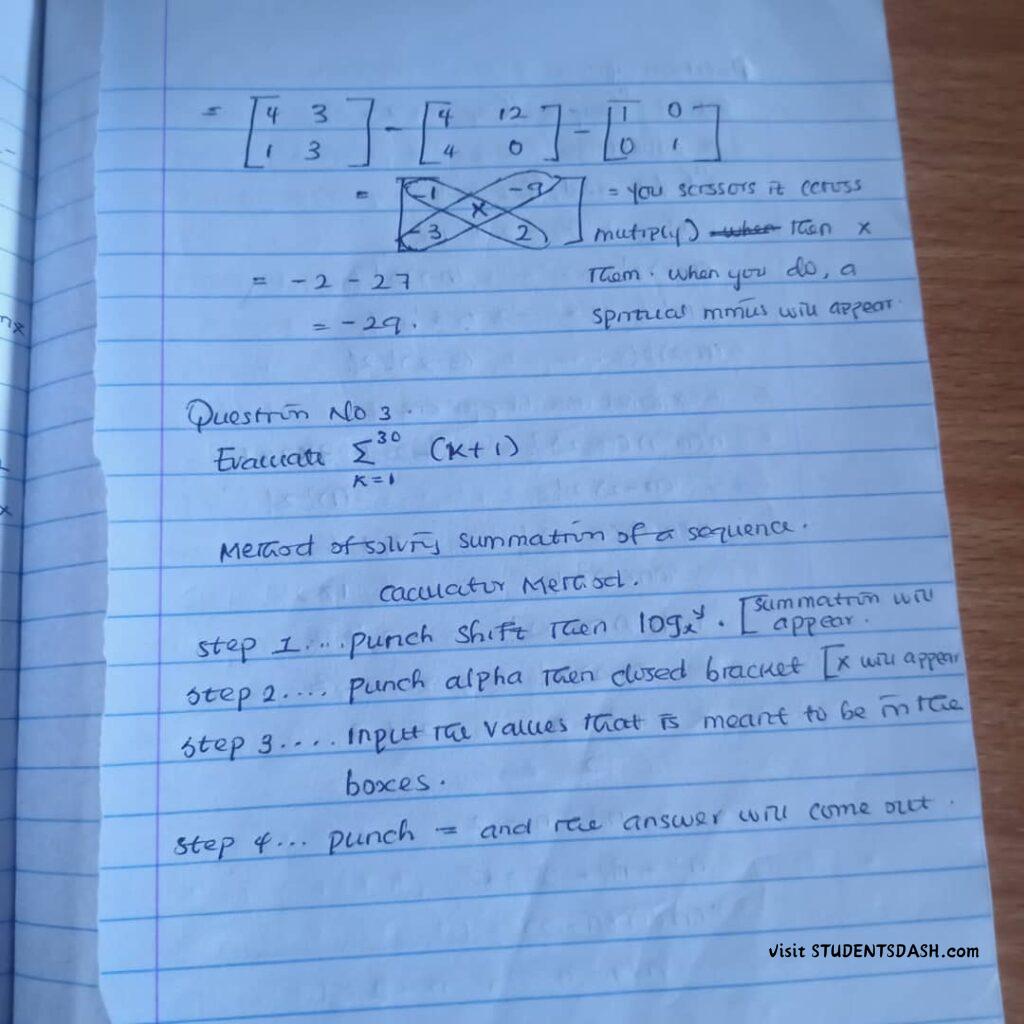 = [4 3 1 3] - [4 12 4 0] - [1 0 0 1]
= [-1 -9 -3 2] = you scissors it (cross
mutiply) when then x
= -2 - 27 Them. when you do, a
= -29. spiritual minus will appear.
Question No 3.
Evaluate Σ³⁰ₖ₌₁ (k+1)
Method of solving summation of a sequence.
Caculator Method.
Step 1.... punch shift then logₓy. [summation will appear.
Step 2.... punch alpha then closed bracket [x will appear
Step 3.... Input the values that is meant to be in the
boxes.
Step 4... punch = and the answer will come out.
Visit STUDENTSDASH.com